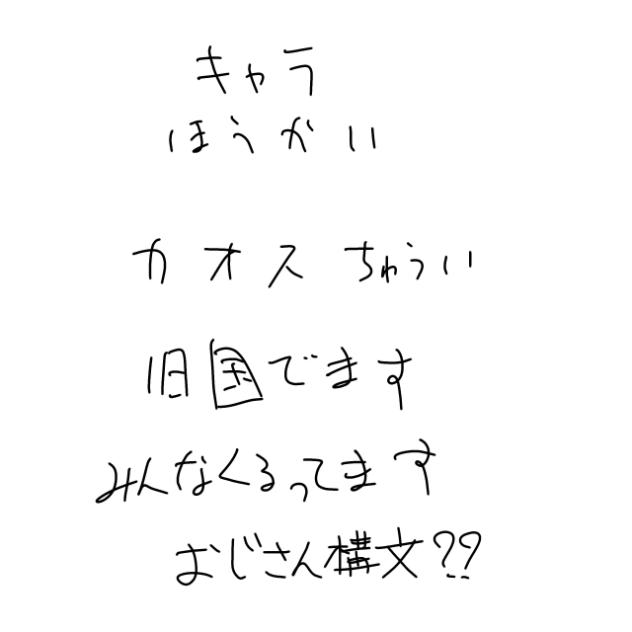 キャラ
ほうかい
カオスちゅうい
旧国でます
みんなくるってます
おじさん構文??